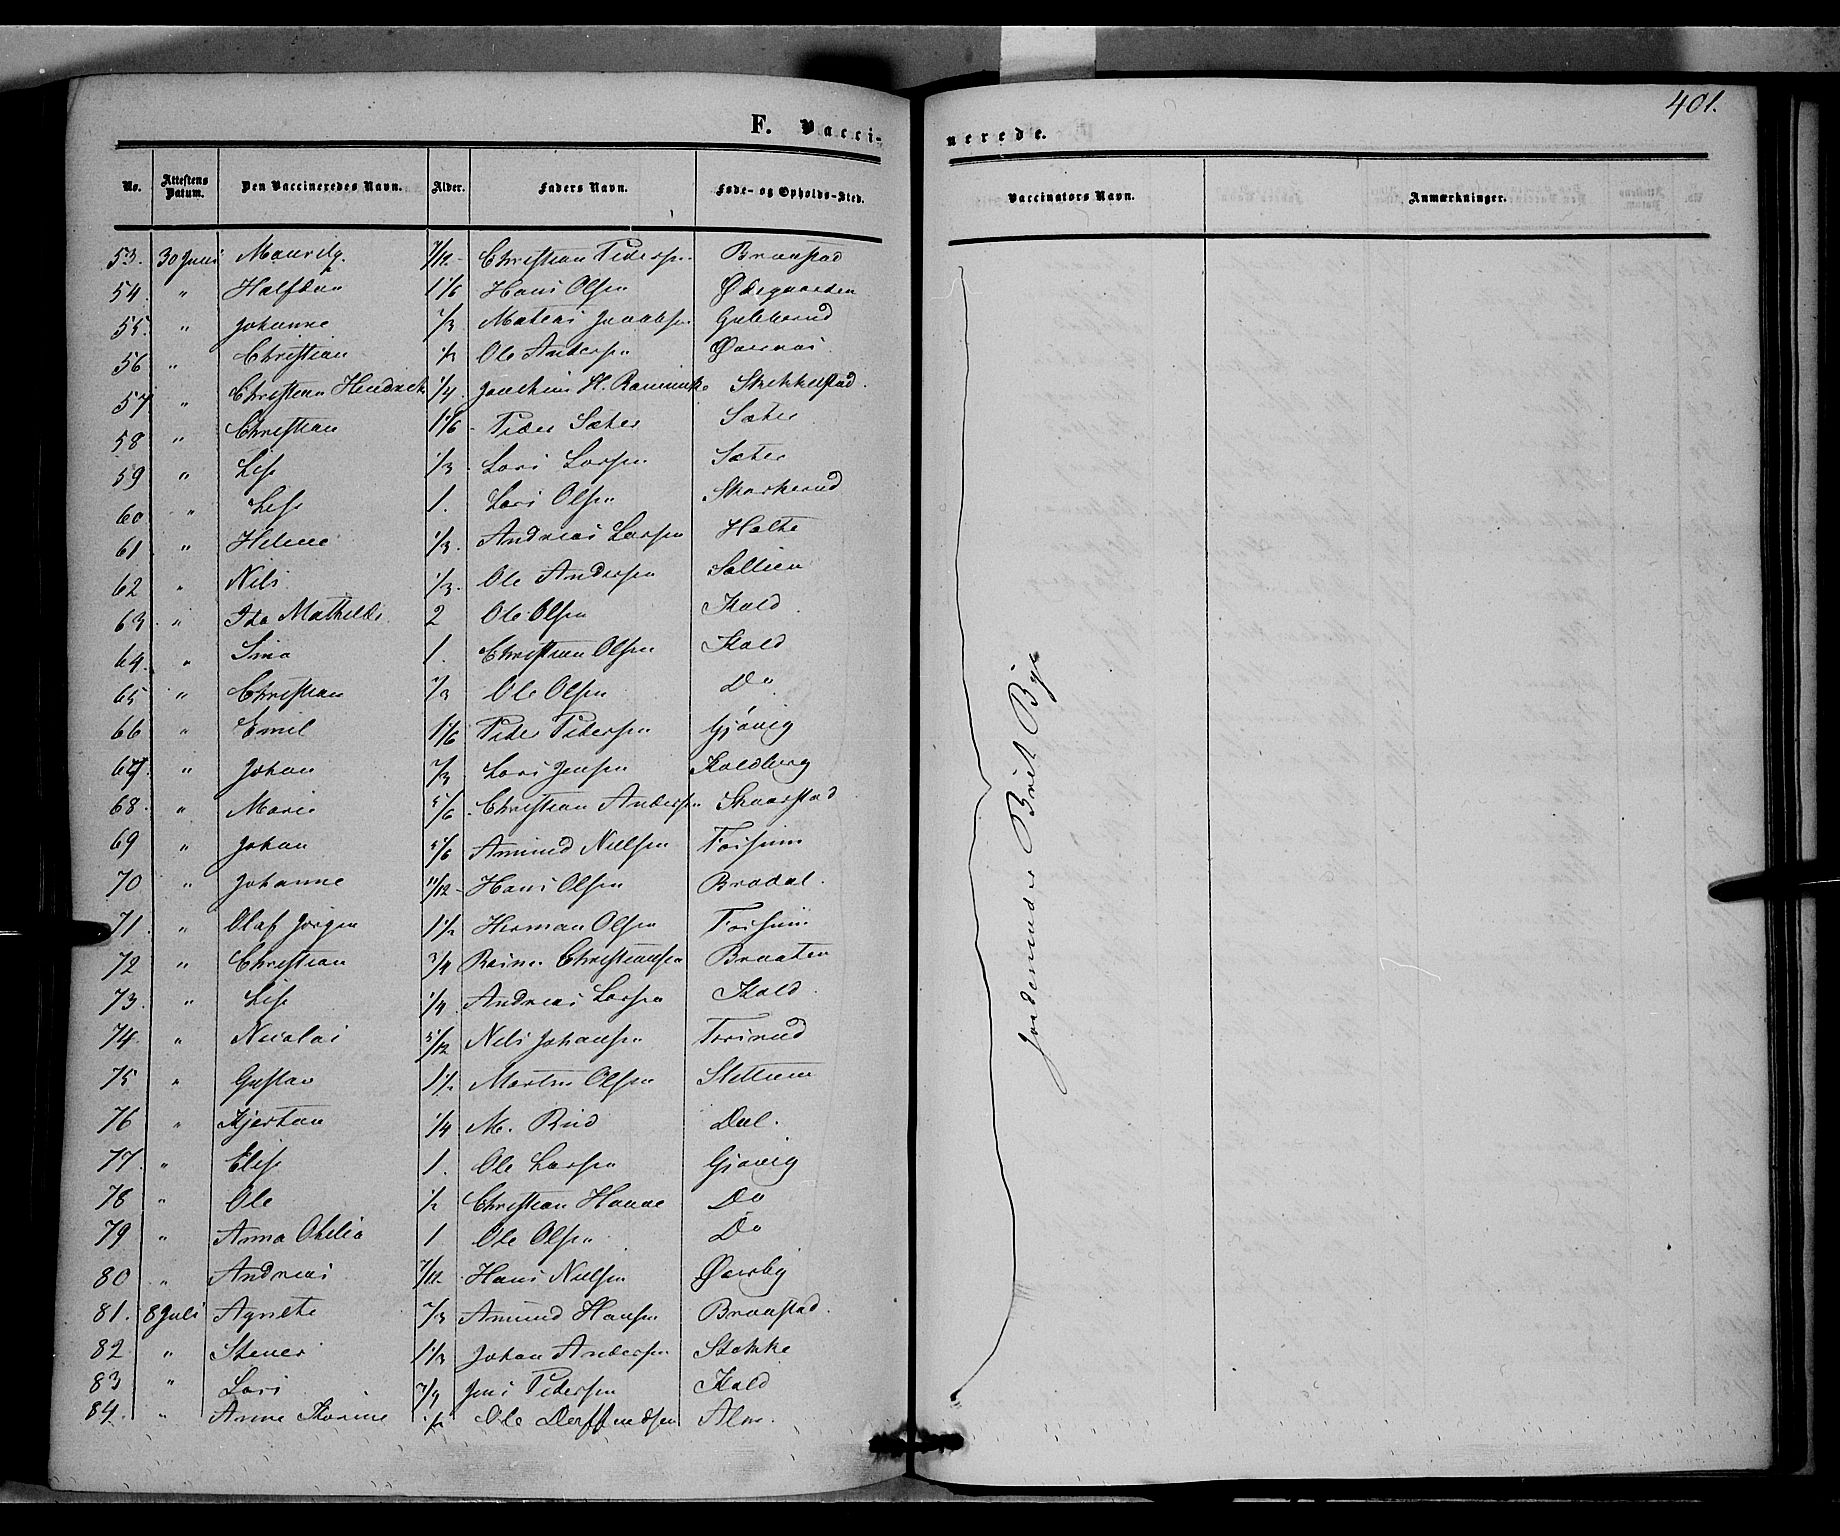 401.
F. Vaccinerede.
No. Attestens Datum. Den Vaccineredes Navn. Alder. Faders Navn. Føde- og Opholds-Sted. Vaccinators Navn. Anmærkninger.
53. 30 Juni 7/12 Christian Pedersen Braastad
54. " Halfdan 1 1/6 Hans Olsen Ødegaarden
55. " Johanne 2/3 Mateas Jacobsen
56 " Christian 1/2 Ole Andersen Øvernæs
57 " Christian Hendrick 1/4. Joachim H. Skikkelstad.
58 " Christian 1 1/6 Peder Sæter Sæter
59 " Lise 1/3 Lars Larsen Sæter
60 " Lise 1. Lars Olsen Skarkerud
61 " Helene 1/3. Andreas Larsen Holte
62 " Nils 1/3. Ole Andersen
63. " Ida Mathilde 2 Ole Olsen Kald.
64. " Sina 1. Christian Olsen Kald
65 " Christian 2/3 Ole Olsen Do
66 " Emil 1 1/6 Peder Pedersen Gjøvig
67. " Johan 2/3 Lars Jensen Kaldberg
68. " Marie 5/6 Christian Andersen Skaarstad
69 " Johan 5/6 Amund Nielsen Fossum
70 " Johanne 11/12 Hans Olsen Brodal.
71. " Olaf Jørgen 1 1/2 Herman Olsen Fossum
72 " Christian 3/4 Christiansen Braaten
73. " Lise 1/4. Andreas Larsen Kald.
74. " Nicolai 5/12 Nils Johansen
75 " Gustav 1 1/2 Martin Olsen
76 " Kjerstan 1/4 M. Rud Dal.
77. " Elise 1. Ole Larsen Gjøvig
78 " Ole 1/2 Christian Do
79 " Anna Otelia 1 Ole Olsen Do
80 " Andreas 7/12 Hans Nielsen Øverby
81. 8 Juli Agnete 2/3 Amund Hansen Braastad.
82 " Stener 1 1/3 Johan Andersen Stokke
83 " Lars Jens Pedersen Kald
84. " Anne Karine 1/2 Ole Alm.
Jordemoder Brit Bye